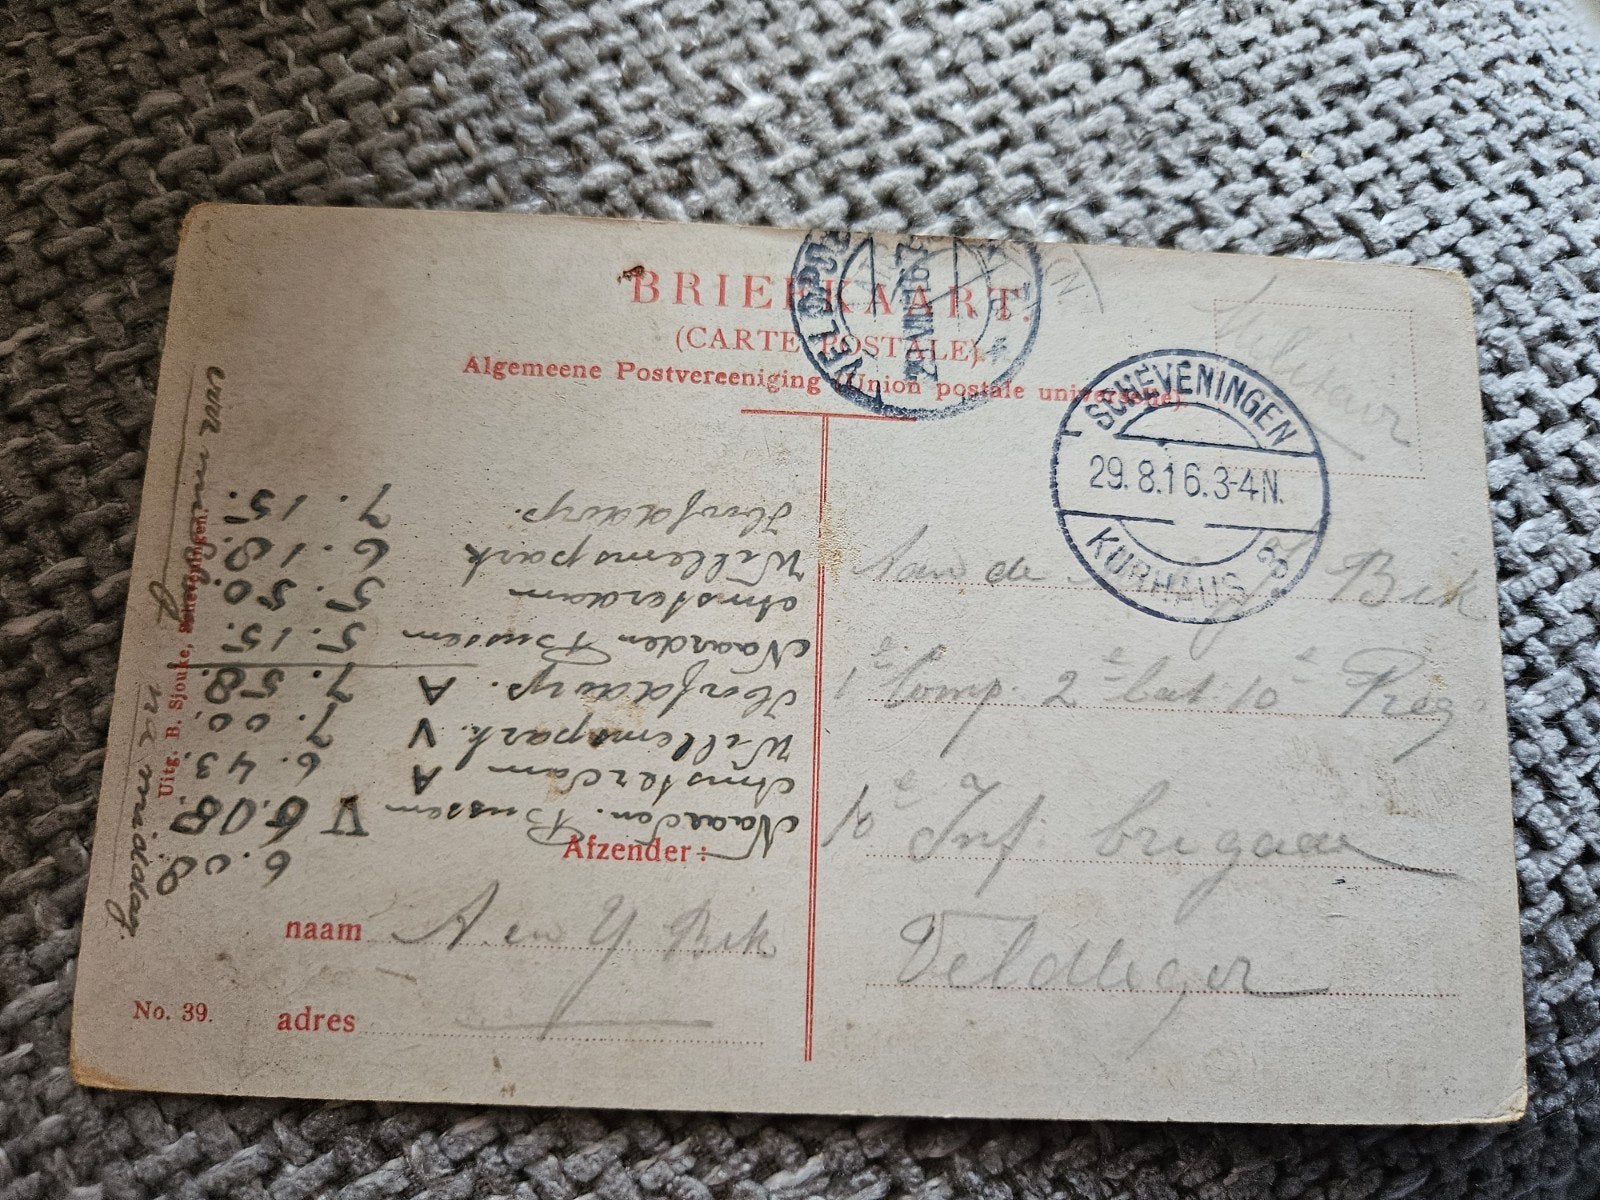 BRIEFKAART.
(CARTE POSTALE)
Algemeene Postvereeniging (Union postale universelle).
SCHEVENINGEN
29.8.16.3-4N.
KURHAUS
VELDPO
Militair
Aan de Bik
1e Comp. 2e bat 10e Reg.
Inf brigade
Veldleger
Naarden. Bussem V 6.08 6.08
Amsterdam A 6.43.
Willemspark. V 7.00.
Hoofddorp. A 7.58.
Naarden Bussem 5.15.
Amsterdam 5.50.
Willemspark 6.18.
Hoofddorp. 7.15.
na middag.
Uitg. B. Sjouke, Scheveningen.
Afzender:
naam A en Y. Bik
No. 39.
adres